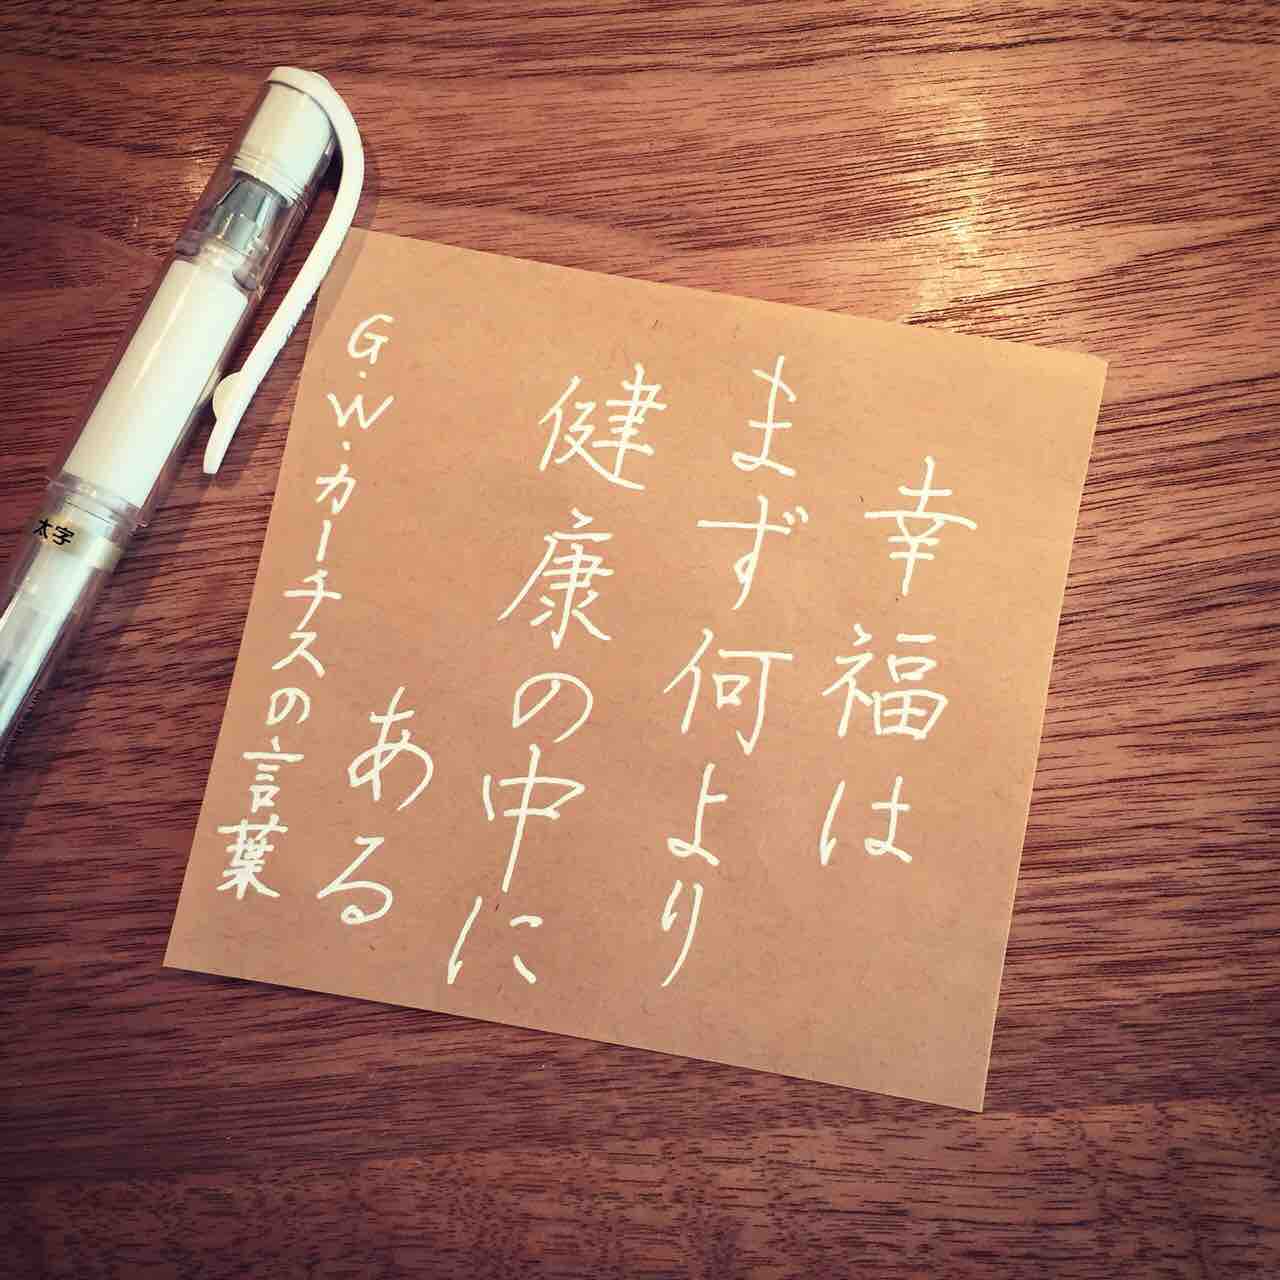 幸福は
まず何より
健康の中に
ある
G・W・カーチスの言葉
太字